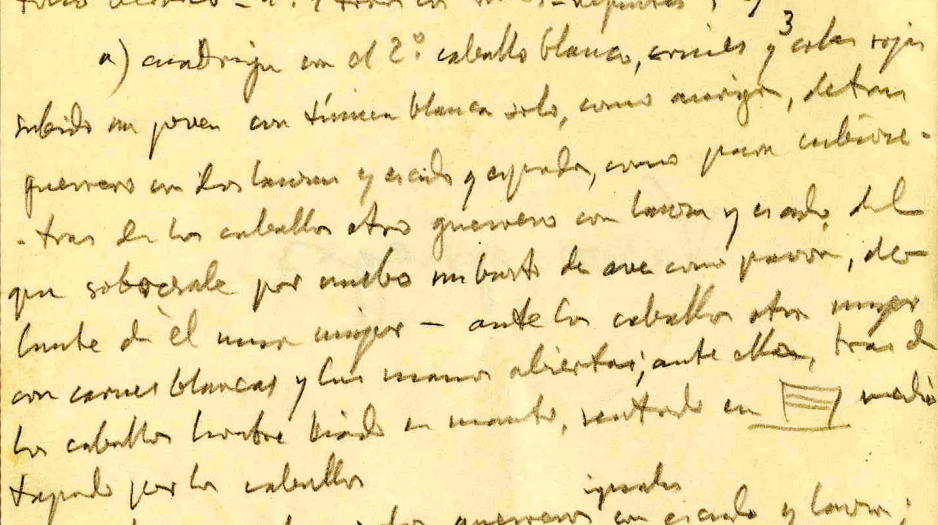 a) cuadriga con el 2º caballo blanco, crines y 3 colas rojas
subido un joven con túnica blanca solo, como auriga, detras
guerrero con dos lanzas y escudo y espada, como para subirse -
- tras de los caballos otro guerrero con lanza y escudo del
que sobresale por un busto de ave como pavón, de-
lante de él una mujer – ante los caballos otra mujer
con carnes blancas y las manos abiertas; ante ella, tras de
los caballos hombre liado en manto, sentado en medio
tapado por los caballos
iguales
guerreros con escudo y lanza;